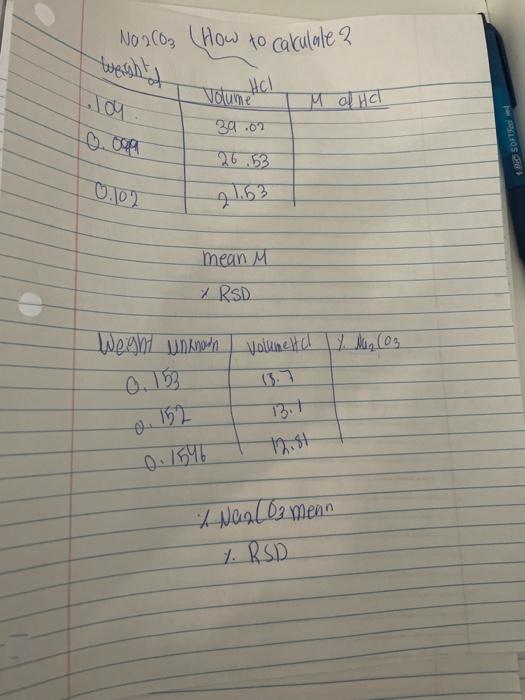 Na2CO3 (How to calculate?
Weight of | Volume HCl | M of HCl
.104 | 39.02
0.099 | 26.53
0.102 | 21.53
mean M
% RSD
Weight Unknown | Volume HCl | % Na2CO3
0.153 | 13.7
0.152 | 13.1
0.1546 | 12.81
% Na2CO3 mean
% RSD